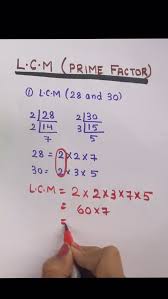 L.C.M (PRIME FACTOR)
① L.C.M (28 and 30)
2 | 28  2 | 30
2 | 14  3 | 15
7  5
28 = 2 × 2 × 7
30 = 2 × 3 × 5
L.C.M = 2 × 2 × 3 × 7 × 5
= 60 × 7
=